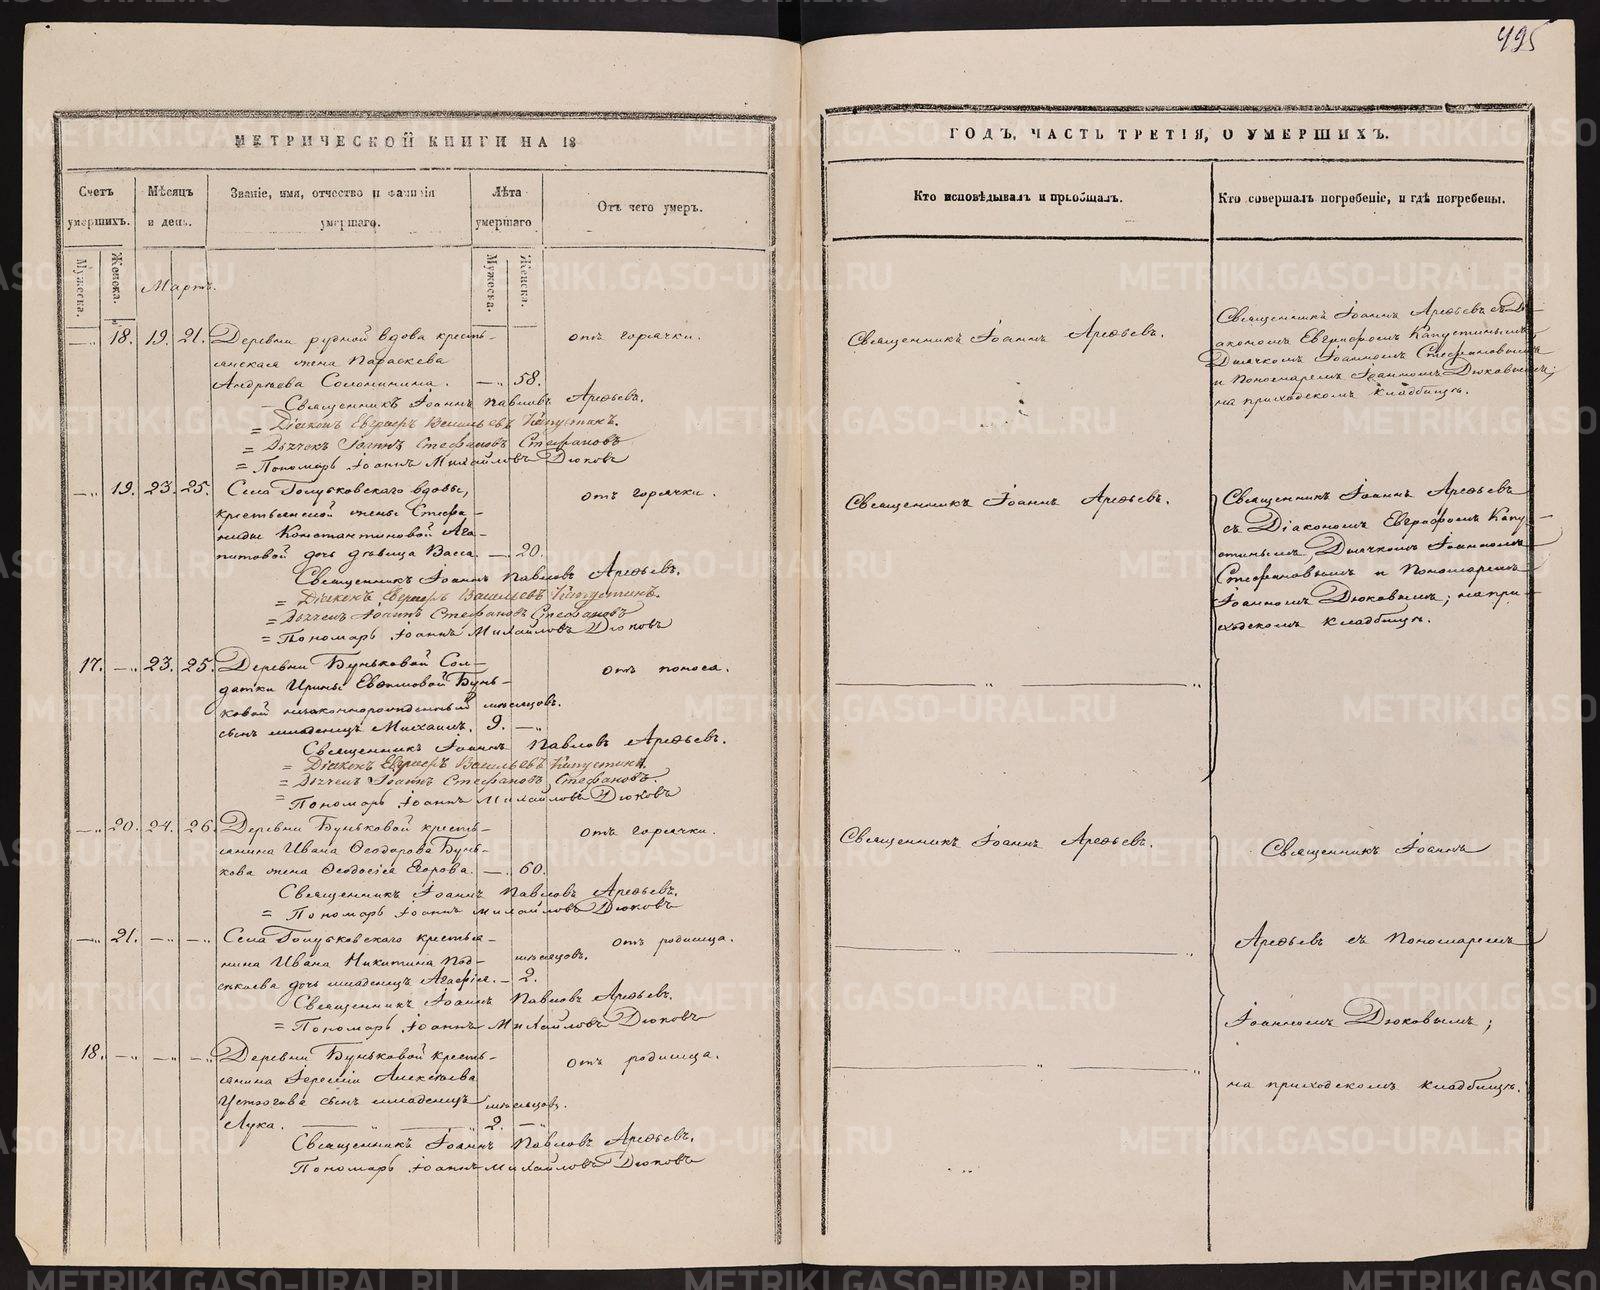 495
МЕТРИЧЕСКОЙ КНИГИ НА 18
ГОДЪ, ЧАСТЬ ТРЕТІЯ, О УМЕРШИХЪ.
Счетъ умершихъ.
Мѣсяцъ и день.
Званіе, имя, отчество и фамилія умершаго.
Лѣта умершаго
Отъ чего умеръ.
Кто исповѣдывалъ и пріобщалъ.
Кто совершалъ погребеніе, и гдѣ погребены.
Мужеска. Женска.
Мужеска. Женска.
Мартъ.
18. 19. 21. Деревни рудной вдова кресть-
янская жена Параскева
Андреева Солонинина. 58.
отъ горячки.
Священникъ Іоаннъ Павловъ Арефьевъ.
= Діаконъ Евграфъ Васильевъ Капустинъ.
= Дьячекъ Іоаннъ Стефановъ Стефановъ
= Пономарь Іоаннъ Михайловъ Дюковъ
Священникъ Іоаннъ Арефьевъ.
Священникъ Іоаннъ Арефьевъ съ Ді-
акономъ Евграфомъ Капустинымъ
Дьячкомъ Іоанномъ Стефановымъ
и Пономаремъ Іоанномъ Дюковымъ;
на приходскомъ кладбищѣ.
19. 23. 25. Села Голубковскаго вдовы,
крестьянской жены Стефа-
ниды Константиновой Ага-
питовой дочь дѣвица Васса. 20.
отъ горячки.
Священникъ Іоаннъ Павловъ Арефьевъ.
= Діаконъ Евграфъ Васильевъ Капустинъ.
= Дьячекъ Іоаннъ Стефановъ Стефановъ
= Пономарь Іоаннъ Михайловъ Дюковъ
Священникъ Іоаннъ Арефьевъ.
Священникъ Іоаннъ Арефьевъ
съ Діакономъ Евграфомъ Капу-
стинымъ, Дьячкомъ Іоанномъ
Стефановымъ и Пономаремъ
Іоанномъ Дюковымъ; на при-
ходскомъ кладбищѣ.
17. 23. 25. Деревни Буньковой Сол-
датки Ирины Евфимовой Бунь-
ковой незаконнорожденный мѣсяцовъ.
сынъ младенецъ Михаилъ. 9.
отъ поноса.
Священникъ Іоаннъ Павловъ Арефьевъ.
= Діаконъ Евграфъ Васильевъ Капустинъ.
= Дьячекъ Іоаннъ Стефановъ Стефановъ.
= Пономарь Іоаннъ Михайловъ Дюковъ
20. 24. 26. Деревни Буньковой кресть-
янина Ивана Ѳеодорова Бунь-
кова жена Ѳеодосія Егорова. 60.
отъ горячки.
Священникъ Іоаннъ Павловъ Арефьевъ.
= Пономарь Іоаннъ Михайловъ Дюковъ
Священникъ Іоаннъ Арефьевъ.
Священникъ Іоаннъ
21. Села Голубковскаго крестья-
нина Ивана Никитина Под- мѣсяцовъ.
дочь младенецъ Агафія. 2.
отъ родимца.
Священникъ Іоаннъ Павловъ Арефьевъ.
= Пономарь Іоаннъ Михайловъ Дюковъ
Арефьевъ съ Пономаремъ
Іоанномъ Дюковымъ;
18. Деревни Буньковой кресть-
янина Іереміи Алексѣева
сынъ младенецъ мѣсяцовъ.
Лука. 2.
отъ родимца.
Священникъ Іоаннъ Павловъ Арефьевъ.
Пономарь Іоаннъ Михайловъ Дюковъ
на приходскомъ кладбищѣ.
METRIKI.GASO-URAL.RU